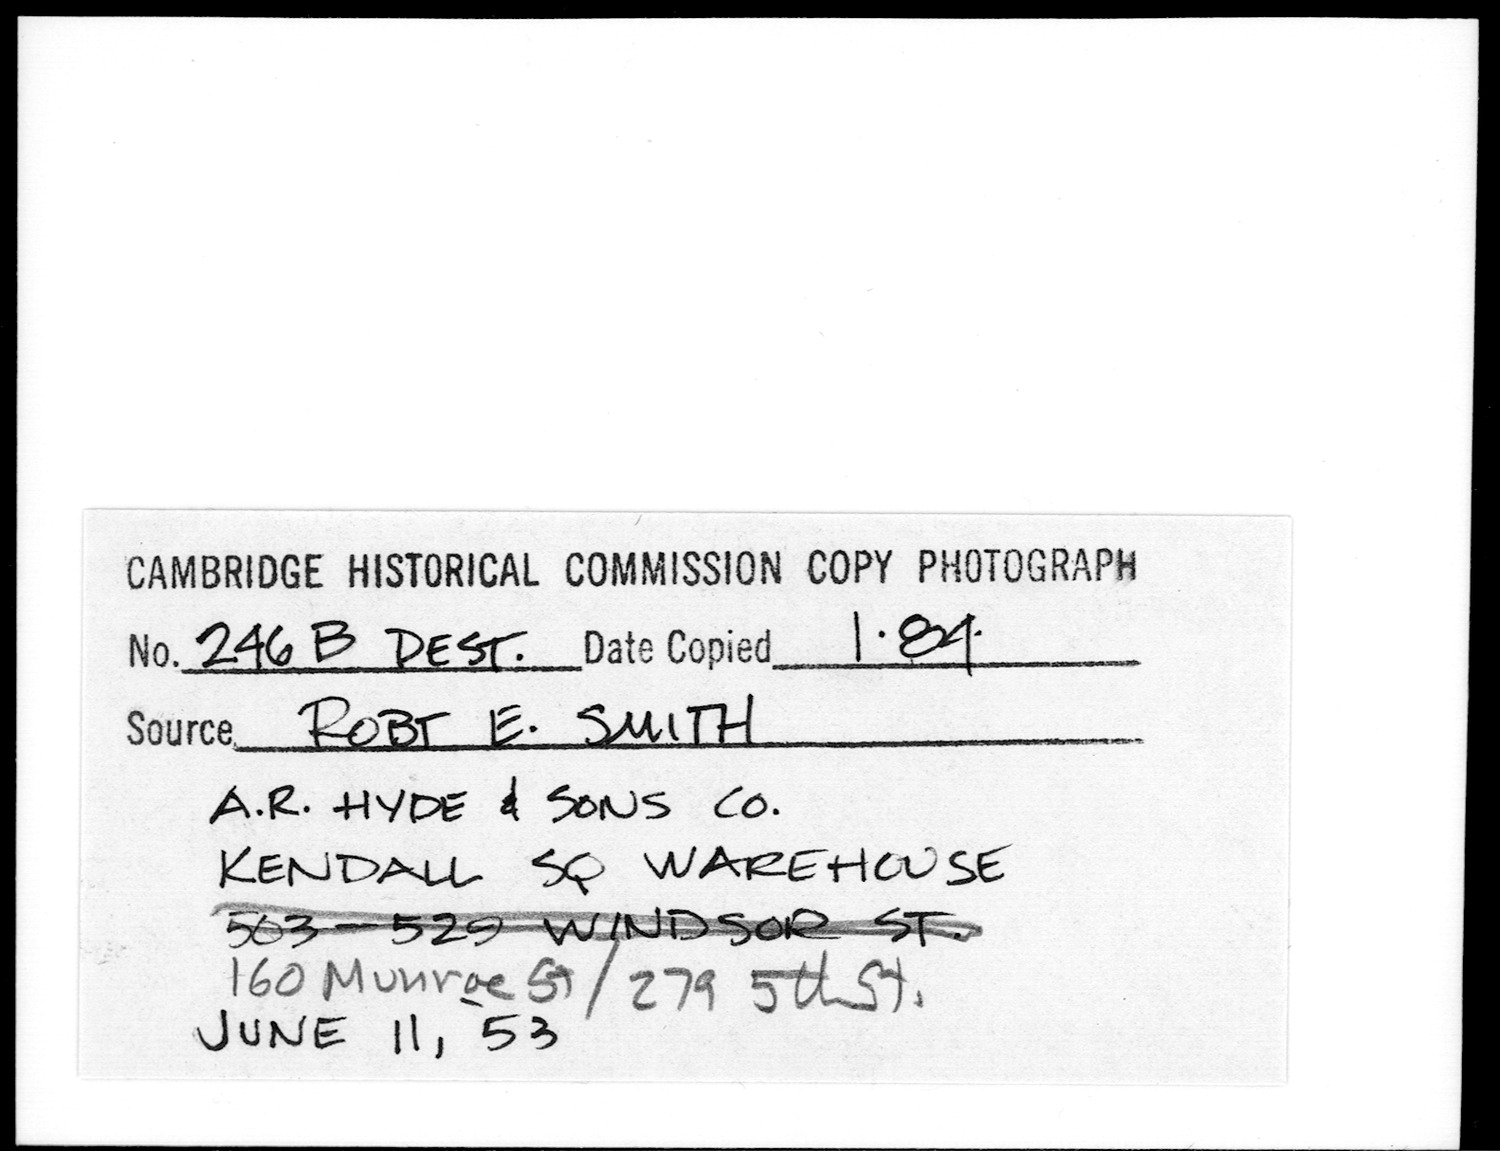 CAMBRIDGE HISTORICAL COMMISSION COPY PHOTOGRAPH
No. 246 B DEST. Date Copied 1·84·
Source ROBT E. SMITH
A.R. HYDE & SONS CO.
KENDALL SQ WAREHOUSE
503-529 WINDSOR ST.
160 Munroe St / 279 5th St.
JUNE 11, 53